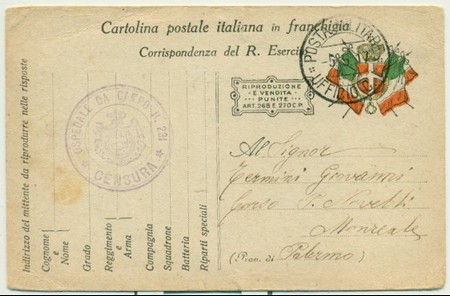 Cartolina postale italiana in franchigia
Corrispondenza del R. Esercito
POSTA MILITARE
UFFICIO
RIPRODUZIONE
E VENDITA
PUNITE
ART. 268 E 270 C.P.
OSPEDALE DA CAMPO N. 231
CENSURA
Indirizzo del mittente da riprodurre nelle risposte
Cognome e Nome
Grado
Reggimento e Arma
Compagnia
Squadrone
Batteria
Riparti speciali
Al Signor
Termini Giovanni
Corso P. Novelli
Monreale
(Prov. di Palermo)